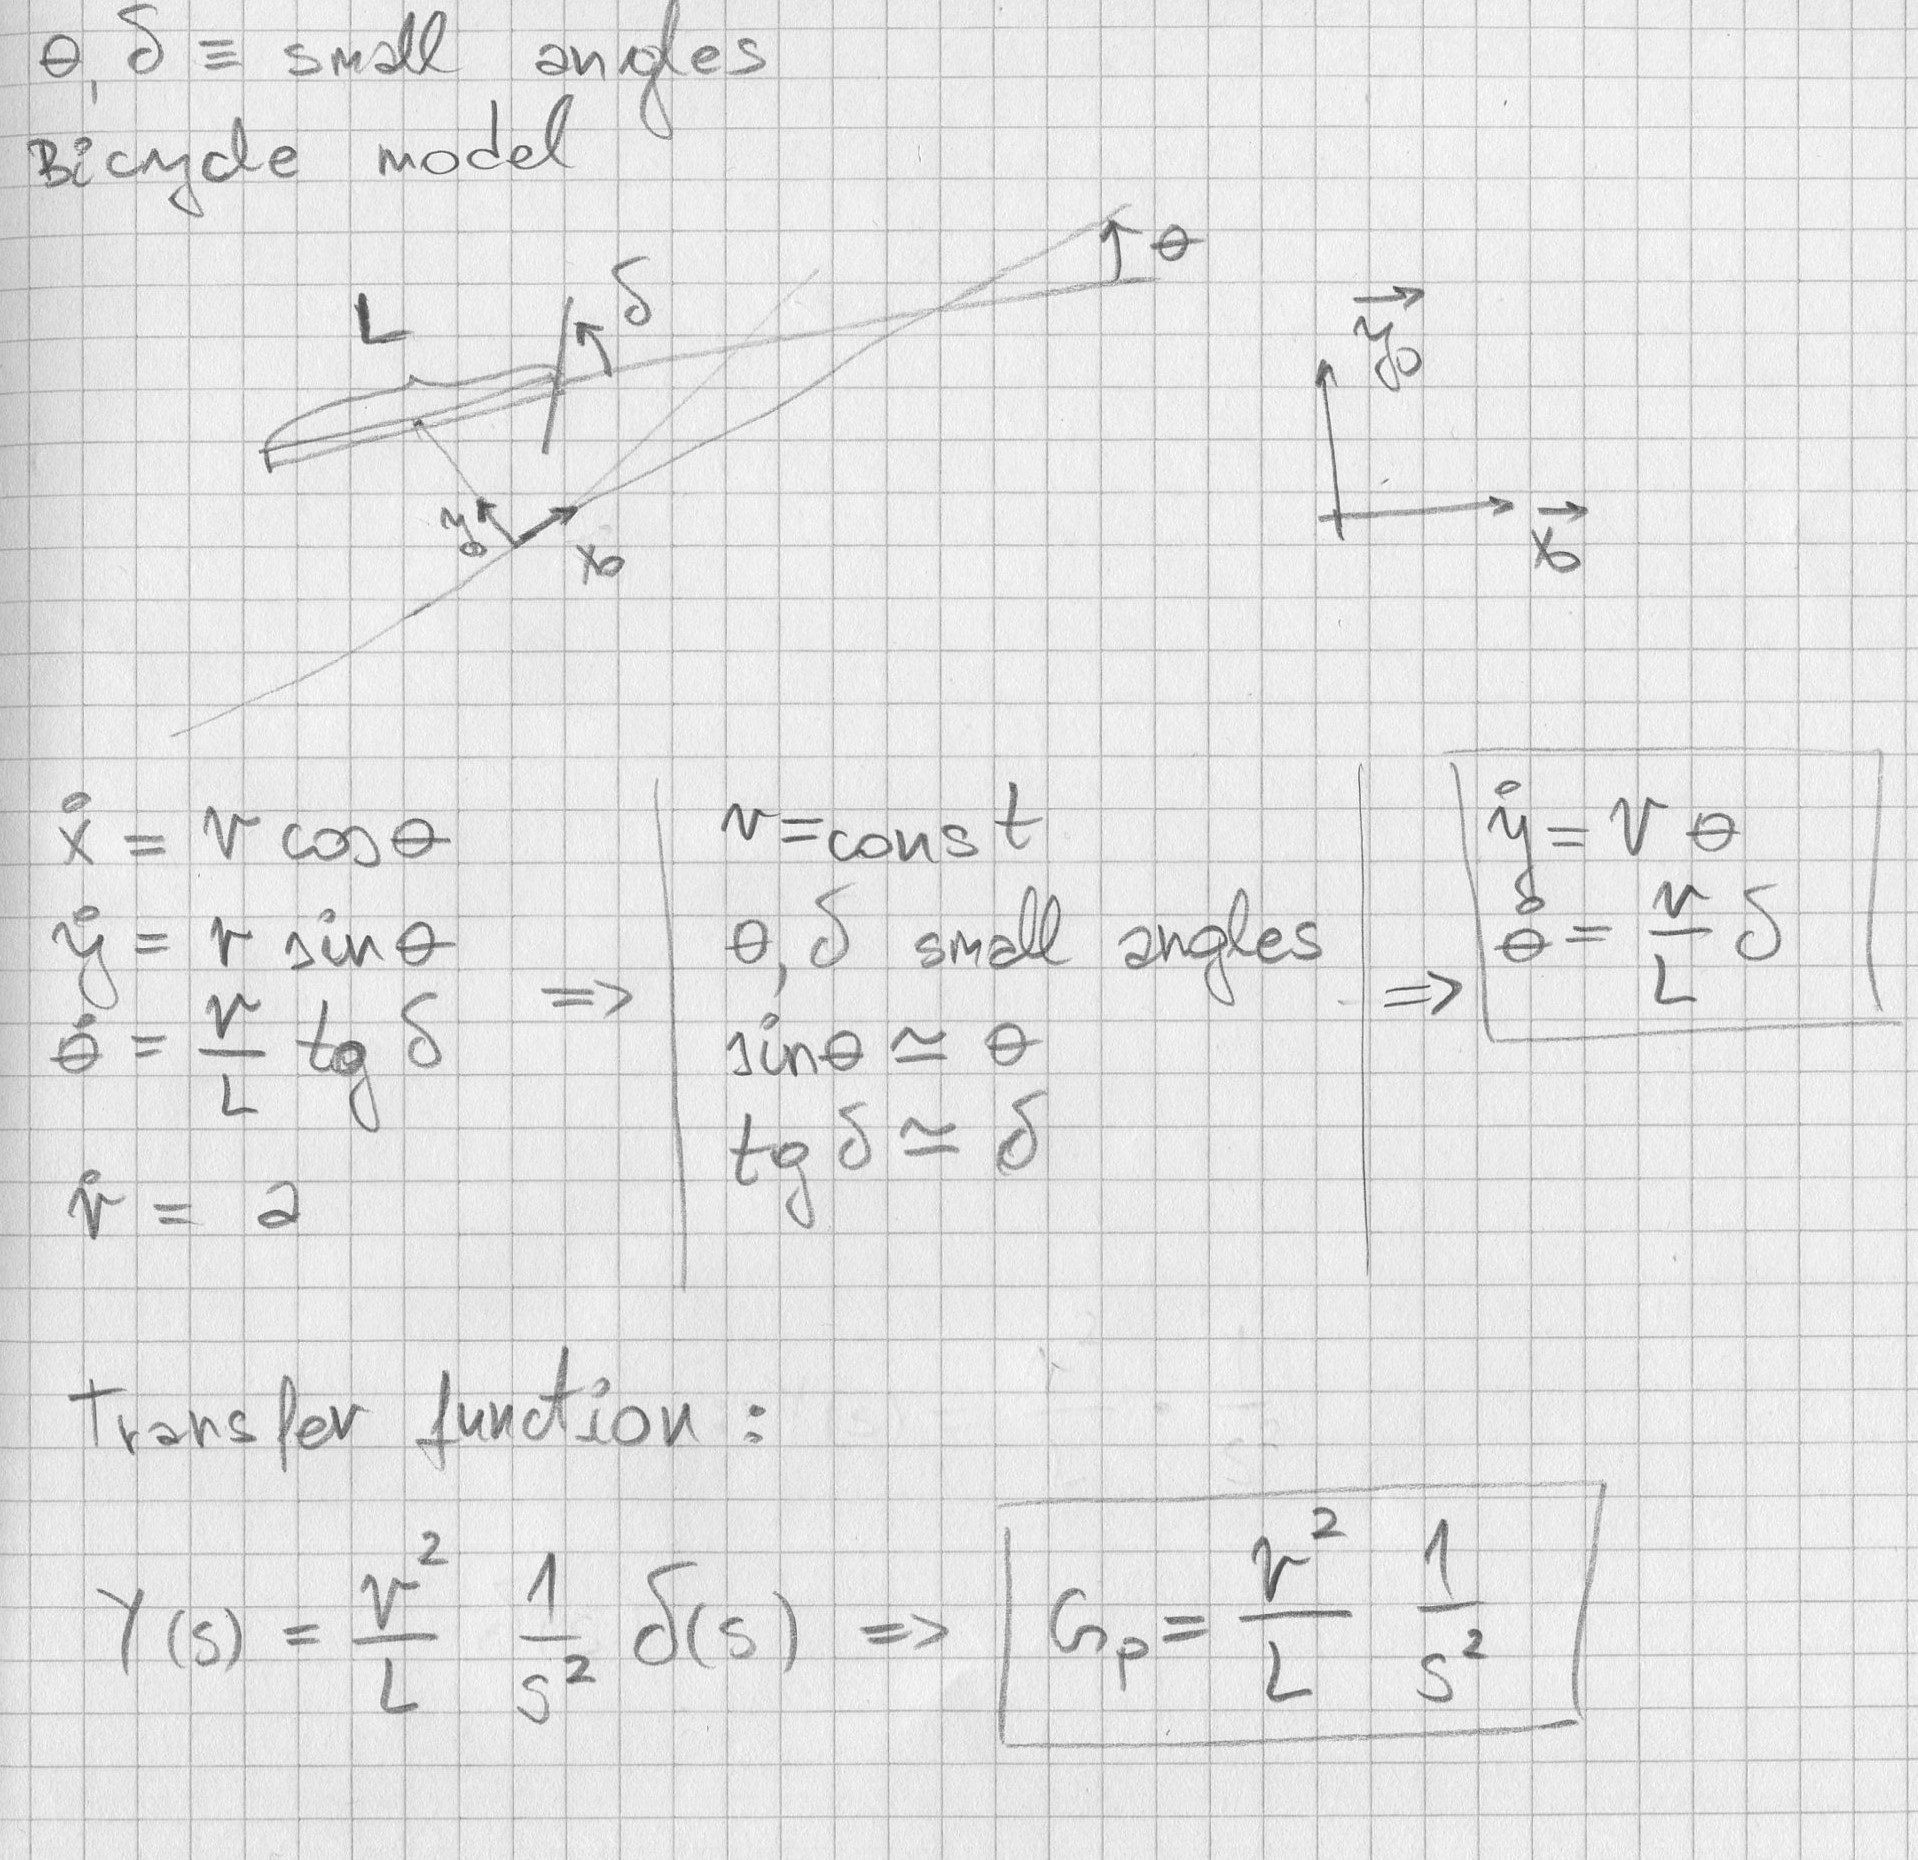 θ, δ ≡ small angles
Bicycle model
θ
δ
L
y₀
x₀
y₀
x₀
ẋ = v cosθ
ẏ = v sinθ
θ̇ = v/L tg δ
v̇ = a
=>
v = const
θ, δ small angles
sinθ ≃ θ
tg δ ≃ δ
=>
ẏ = v θ
θ̇ = v/L δ
Transfer function:
Y(s) = v²/L 1/s² δ(s) => Gp = v²/L 1/s²